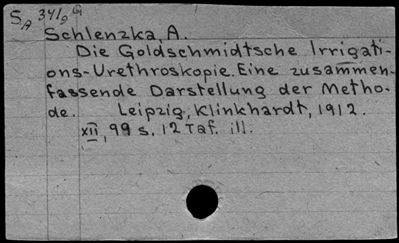 S_A 341/9 G
Schlenzka, A.
Die Goldschmidtsche Irrigati-
ons-Urethroskopie. Eine zusammen-
fassende Darstellung der Metho-
de. Leipzig, Klinkhardt, 1912.
XII, 99 S. 12 Taf. ill.